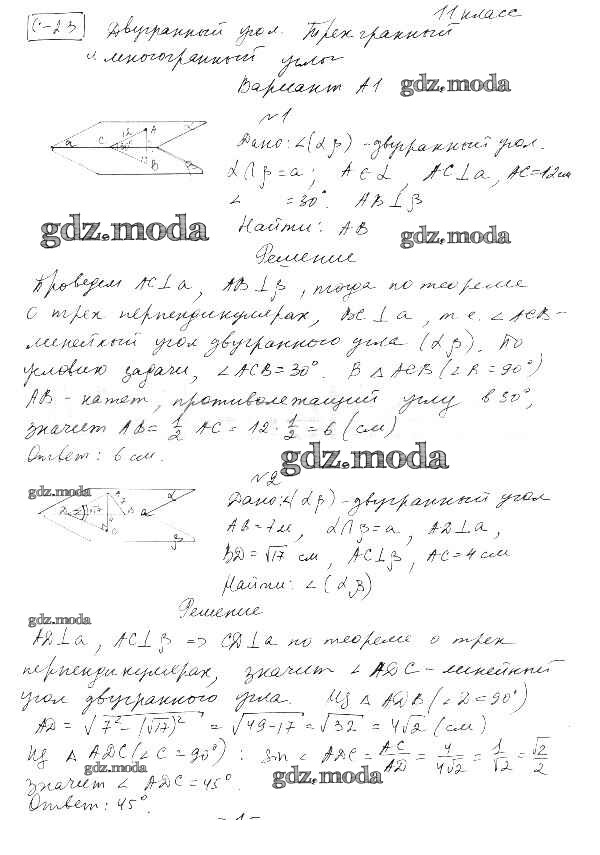 С-23 Двугранный угол. Трехгранный 11 класс
и многогранный углы
Вариант А1 gdz.moda
№1
Дано: ∠(αβ) - двугранный угол.
α∩β=a; A∈α, AC⊥a, AC=12см
∠ =30°. AB⊥β
gdz.moda Найти: AB gdz.moda
Решение
Проведем AC⊥a, AB⊥β, тогда по теореме
о трех перпендикулярах, BC⊥a, т.е. ∠ACB-
линейный угол двугранного угла (αβ). По
условию задачи, ∠ACB=30°. В △ACB(∠B=90°)
AB - катет, противолежащий углу в 30°,
значит AB= 1/2 AC = 12·1/2 = 6 (см)
Ответ: 6 см. gdz.moda
№2
gdz.moda
Дано: ∠(αβ)-двугранный угол
AB=7м, α∩β=a, AD⊥a,
BD=√17 см, AC⊥β, AC=4см
Найти: ∠(αβ)
gdz.moda
Решение
AD⊥a, AC⊥β => CD⊥a по теореме о трех
перпендикулярах, значит ∠ADC-линейный
угол двугранного угла. Из △ADB(∠D=90°)
AD = √7²-(√17)² = √49-17 = √32 = 4√2 (см)
Из △ADC(∠C=90°): sin∠ADC = AC/AD = 4/4√2 = 1/√2 = √2/2
gdz.moda gdz.moda
значит ∠ADC=45°.
Ответ: 45°.
-1-